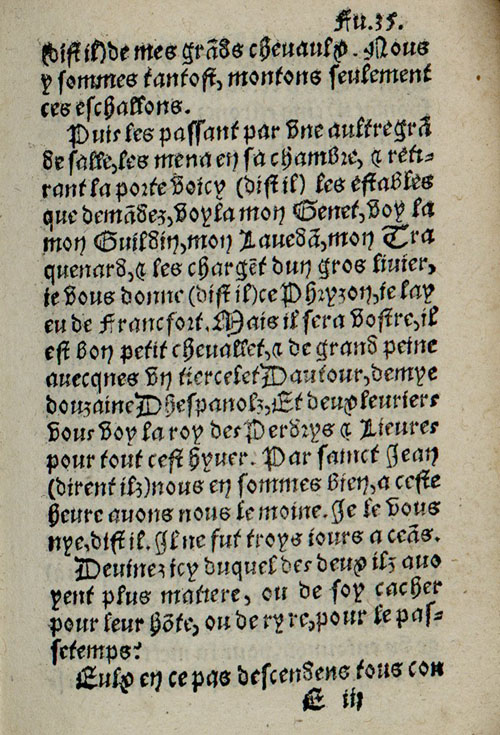 Fu.35.
(dist il) de mes grãds chevaulx. Nous
y sommes tantost, montons seulement
ces eschallons.
Puis les passant par vne aultre grã
de salle, les mena en sa chambre, & reti-
rant la porte voicy (dist il) les estables
que demãdez, voyla mon Genet, voy la
mon Guildin, mon Lauedã, mon Tra
quenard, & les chargẽt dun gros liuier,
ie vous donne (dist il) ce Phryzon, ie lay
eu de Francfort. Mais il sera vostre, il
est bon petit cheuallet, & de grand peine
auecques vn tiercelet Dautour, demye
douzaine Dhespanolz, Et deux leuriers
vous voy la roy des Perdrys & Lieures
pour tout cest hyuer. Par sainct Jean
(dirent ilz) nous en sommes bien, a ceste
heure auons nous le moine. Je le vous
nye, dist il. Il ne fut troys iours a ceãs.
Deuinez icy duquel des deux ilz auo
yent plus matiere, ou de soy cacher
pour leur hõte, ou de ryre, pour le pas-
setemps?
Eulx en ce pas descendens tous con
E iij